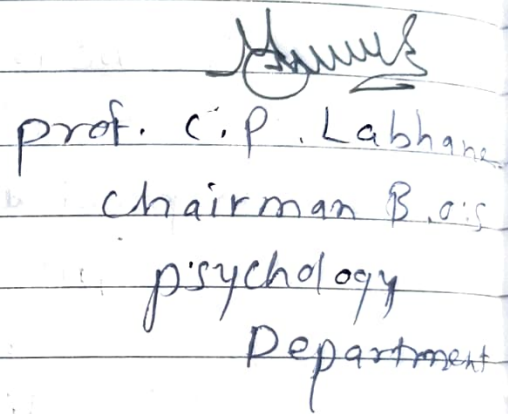 prof. C.P. Labhane
Chairman B.O.S
psychology
Department